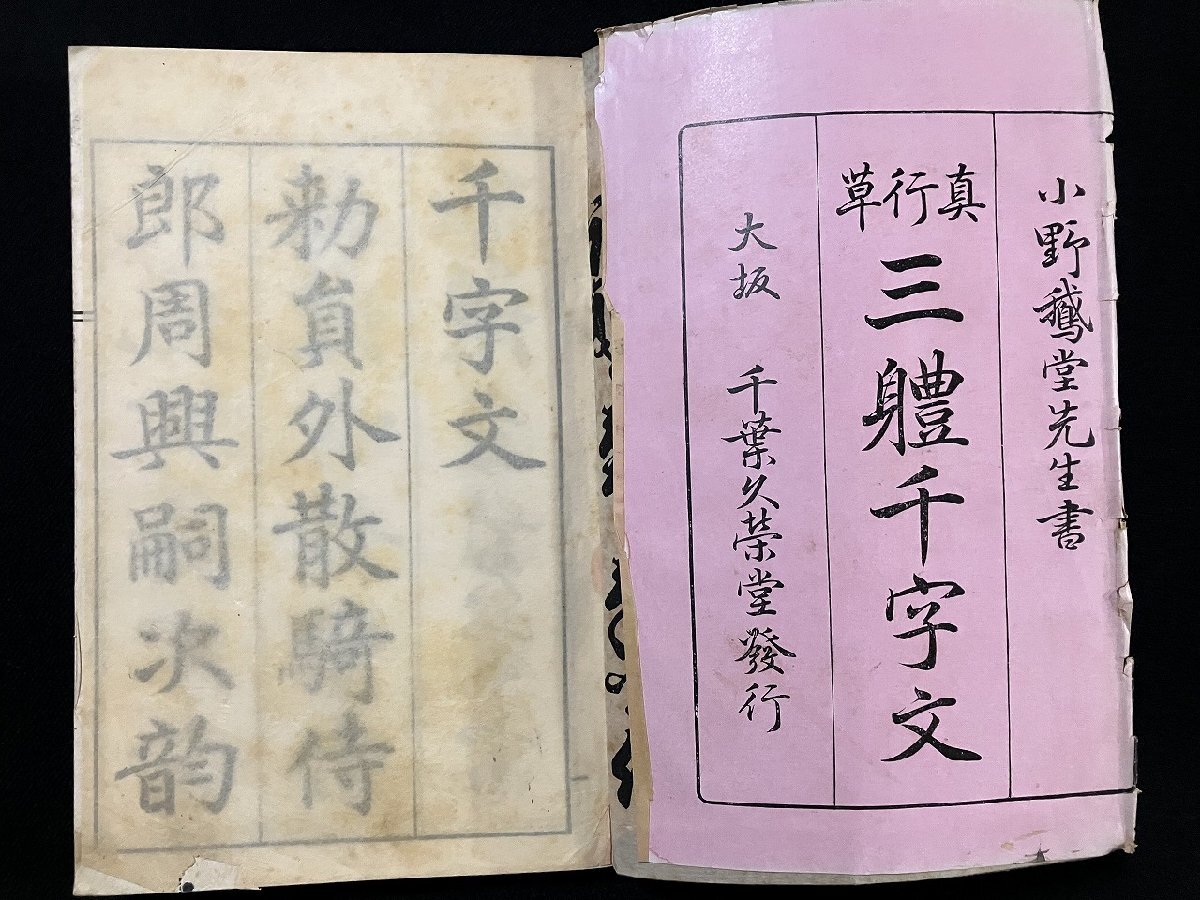 小野鵞堂先生書
真行草
三體千字文
大坂 千葉久榮堂發行
千字文
勅員外散騎侍
郎周興嗣次韵